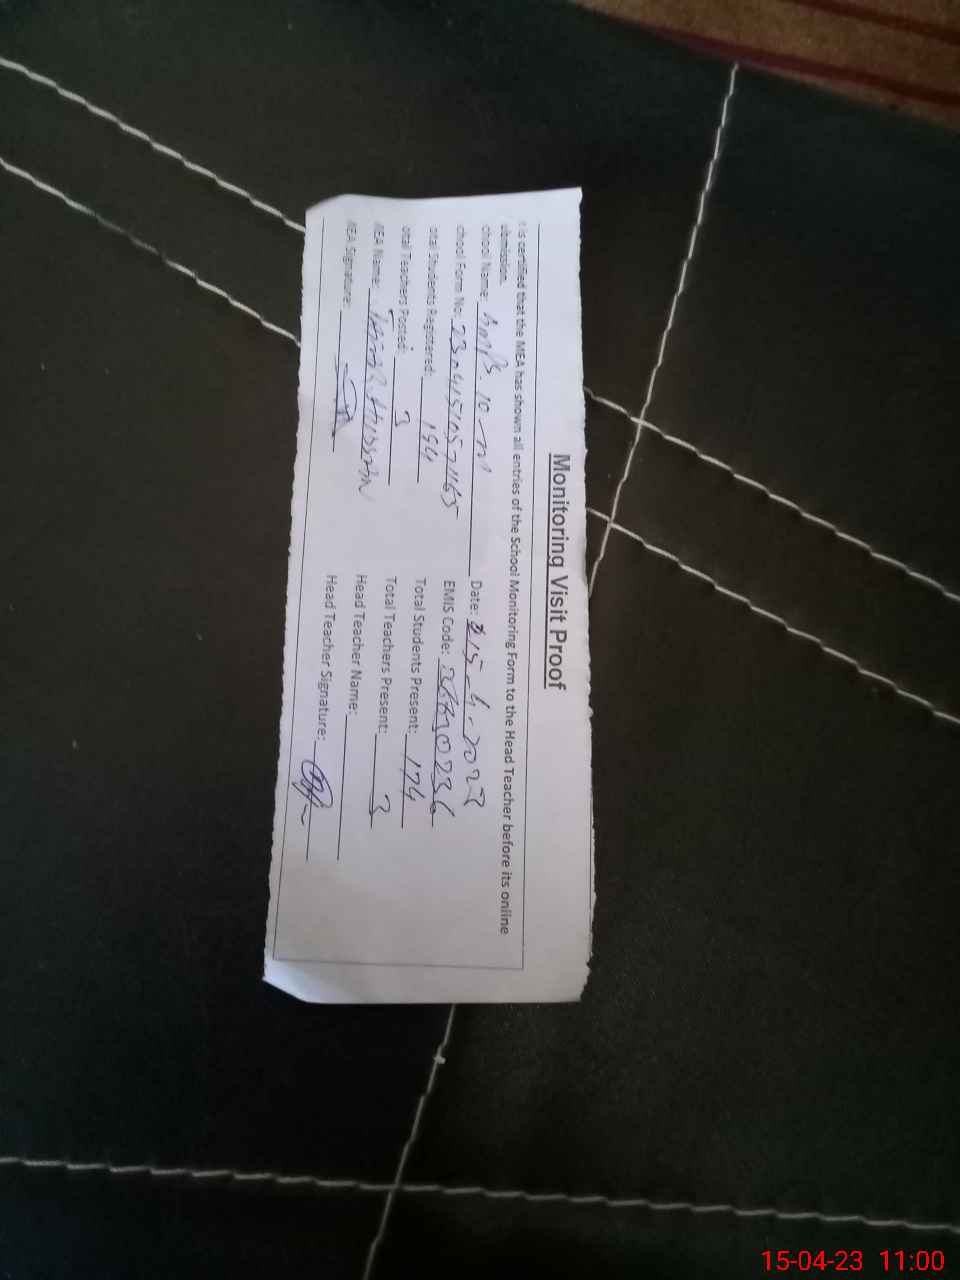 Monitoring Visit Proof
t is certified that the MEA has shown all entries of the School Monitoring Form to the Head Teacher before its online
ubmission.
chool Name: Date: 15-4-2023
chool Form No: EMIS Code:
otal Students Registered: 194 Total Students Present: 174
otal Teachers Posted: 3 Total Teachers Present: 3
MEA Name: Head Teacher Name:
MEA Signature: Head Teacher Signature:
15-04-23 11:00